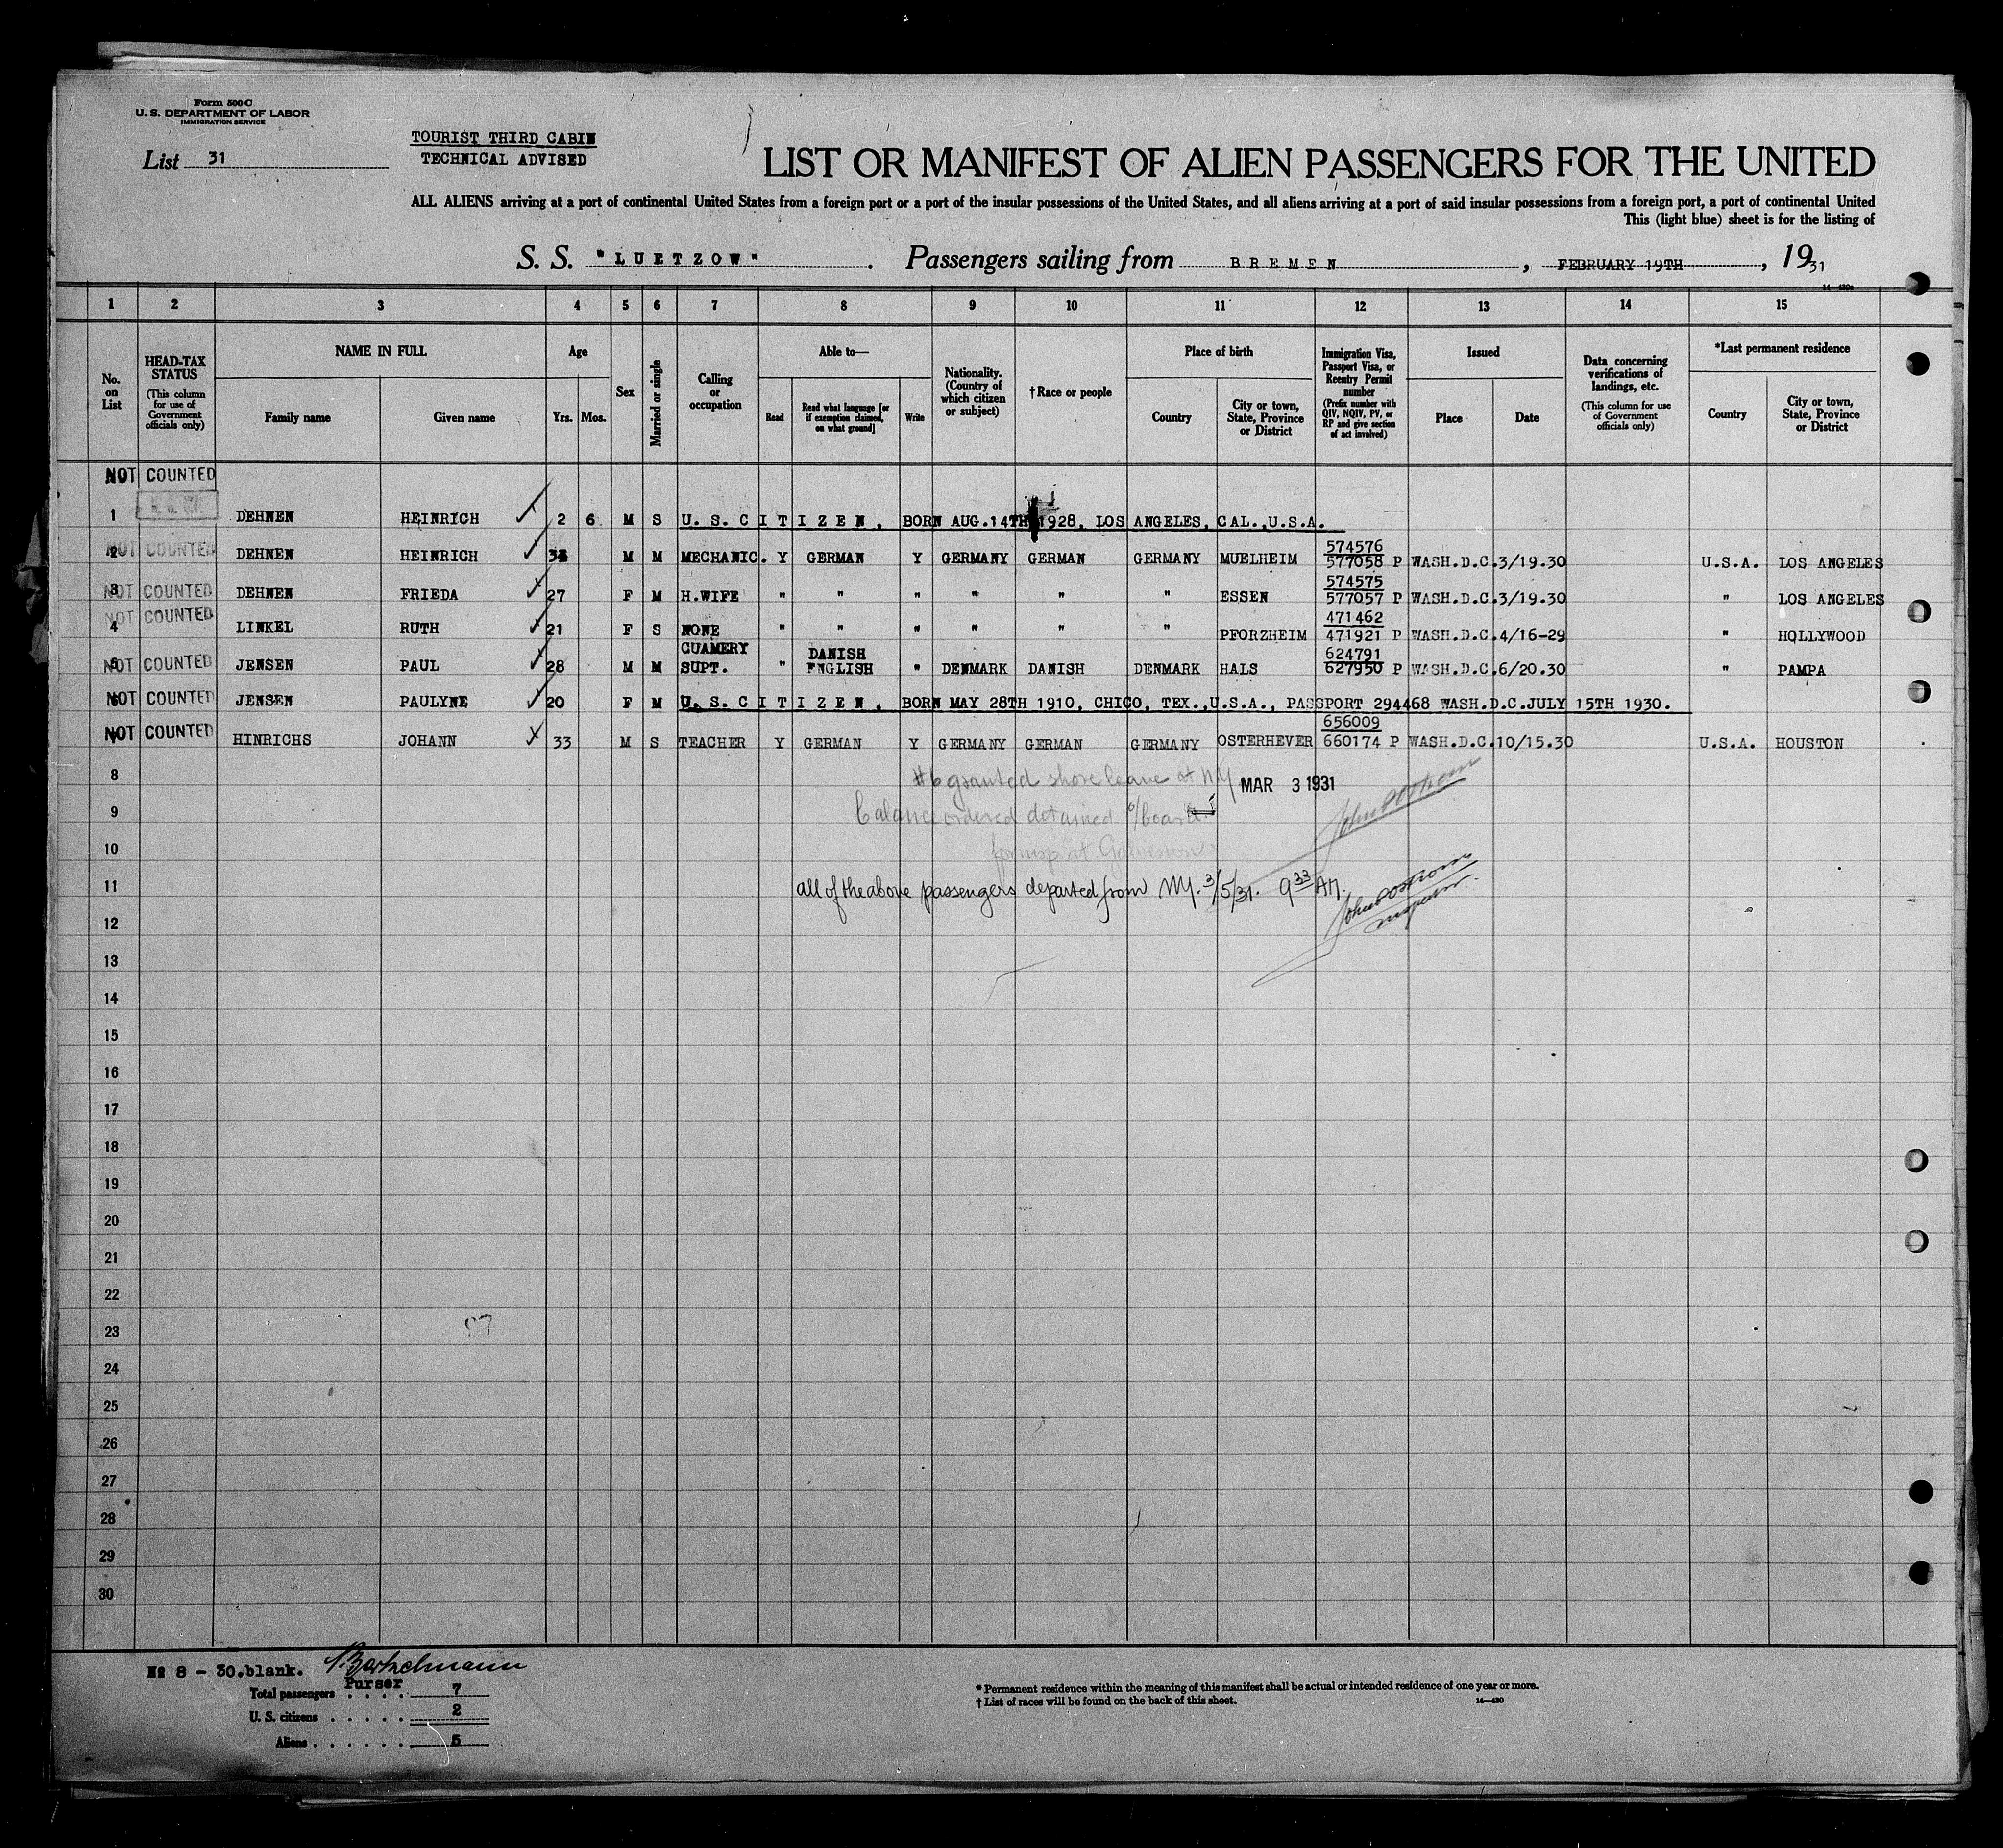 Form 500 C
U. S. DEPARTMENT OF LABOR
IMMIGRATION SERVICE
List 31
TOURIST THIRD CABIN
TECHNICAL ADVISED
LIST OR MANIFEST OF ALIEN PASSENGERS FOR THE UNITED
ALL ALIENS arriving at a port of continental United States from a foreign port or a port of the insular possessions of the United States, and all aliens arriving at a port of said insular possessions from a foreign port, a port of continental United
This (light blue) sheet is for the listing of
S. S. "LUETZOW". Passengers sailing from BREMEN, FEBRUARY 19TH, 1931
1 2 3 4 5 6 7 8 9 10 11 12 13 14 15
No. on List
HEAD-TAX STATUS (This column for use of Government officials only)
NAME IN FULL
Family name Given name
Age
Yrs. Mos.
Sex
Married or single
Calling or occupation
Able to—
Read Read what language [or if exemption claimed, on what ground] Write
Nationality. (Country of which citizen or subject)
†Race or people
Place of birth
Country City or town, State, Province or District
Immigration Visa, Passport Visa, or Reentry Permit number (Prefix number with QIV, NQIV, PV, or RP and give section of act involved)
Issued
Place Date
Data concerning verifications of landings, etc. (This column for use of Government officials only)
*Last permanent residence
Country City or town, State, Province or District
NOT COUNTED
1 DEHNEN HEINRICH 2 6 M S U.S.CITIZEN, BORN AUG.14TH 1928, LOS ANGELES, CAL.,U.S.A.
574576
2 NOT COUNTED DEHNEN HEINRICH M M MECHANIC. Y GERMAN Y GERMANY GERMAN GERMANY MUELHEIM 577058 P WASH.D.C.3/19.30 U.S.A. LOS ANGELES
574575
3 NOT COUNTED DEHNEN FRIEDA 27 F M H.WIFE " " " " " " ESSEN 577057 P WASH.D.C.3/19.30 " LOS ANGELES
NOT COUNTED 471462
4 LINKEL RUTH 21 F S NONE " " " " " " PFORZHEIM 471921 P WASH.D.C.4/16-29 " HOLLYWOOD
CUAMERY DANISH 624791
5 NOT COUNTED JENSEN PAUL 28 M M SUPT. " ENGLISH " DENMARK DANISH DENMARK HALS 627950 P WASH.D.C.6/20.30 " PAMPA
6 NOT COUNTED JENSEN PAULYNE 20 F M U.S.CITIZEN, BORN MAY 28TH 1910, CHICO, TEX.,U.S.A., PASSPORT 294468 WASH.D.C.JULY 15TH 1930.
656009
7 NOT COUNTED HINRICHS JOHANN 33 M S TEACHER Y GERMAN Y GERMANY GERMAN GERMANY OSTERHEVER 660174 P WASH.D.C.10/15.30 U.S.A. HOUSTON
8 #6 granted shore leave at NY MAR 3 1931
9 balance ordered detained o/board
10 at Galveston
11 all of the above passengers departed from NY. 3/5/31. 9 33 AM.
12 Inspector
13
14
15
16
17
18
19
20
21
22
23
24
25
26
27
28
29
30
№ 8 - 30.blank. Bartelmann
Purser
Total passengers . . . . 7
U. S. citizens . . . . . 2
Aliens . . . . . . 5
* Permanent residence within the meaning of this manifest shall be actual or intended residence of one year or more.
† List of races will be found on the back of this sheet. 14—430